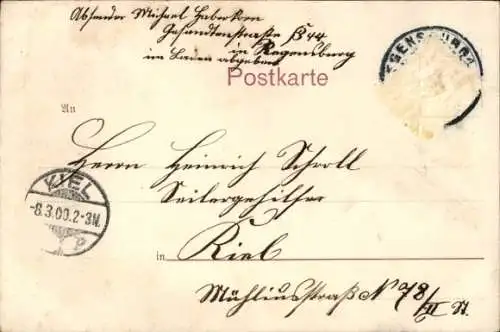 Absender Michael Haberkorn
Gesandtenstraße B 44
in Regensburg
im Laden abgeben
Postkarte
REGENSBURG
An
Herrn Heinrich Scholl
Seilergehilfe
KIEL
-8.3.00.2-3N.
P
in Kiel
Mühliusstraße No 78/II St.